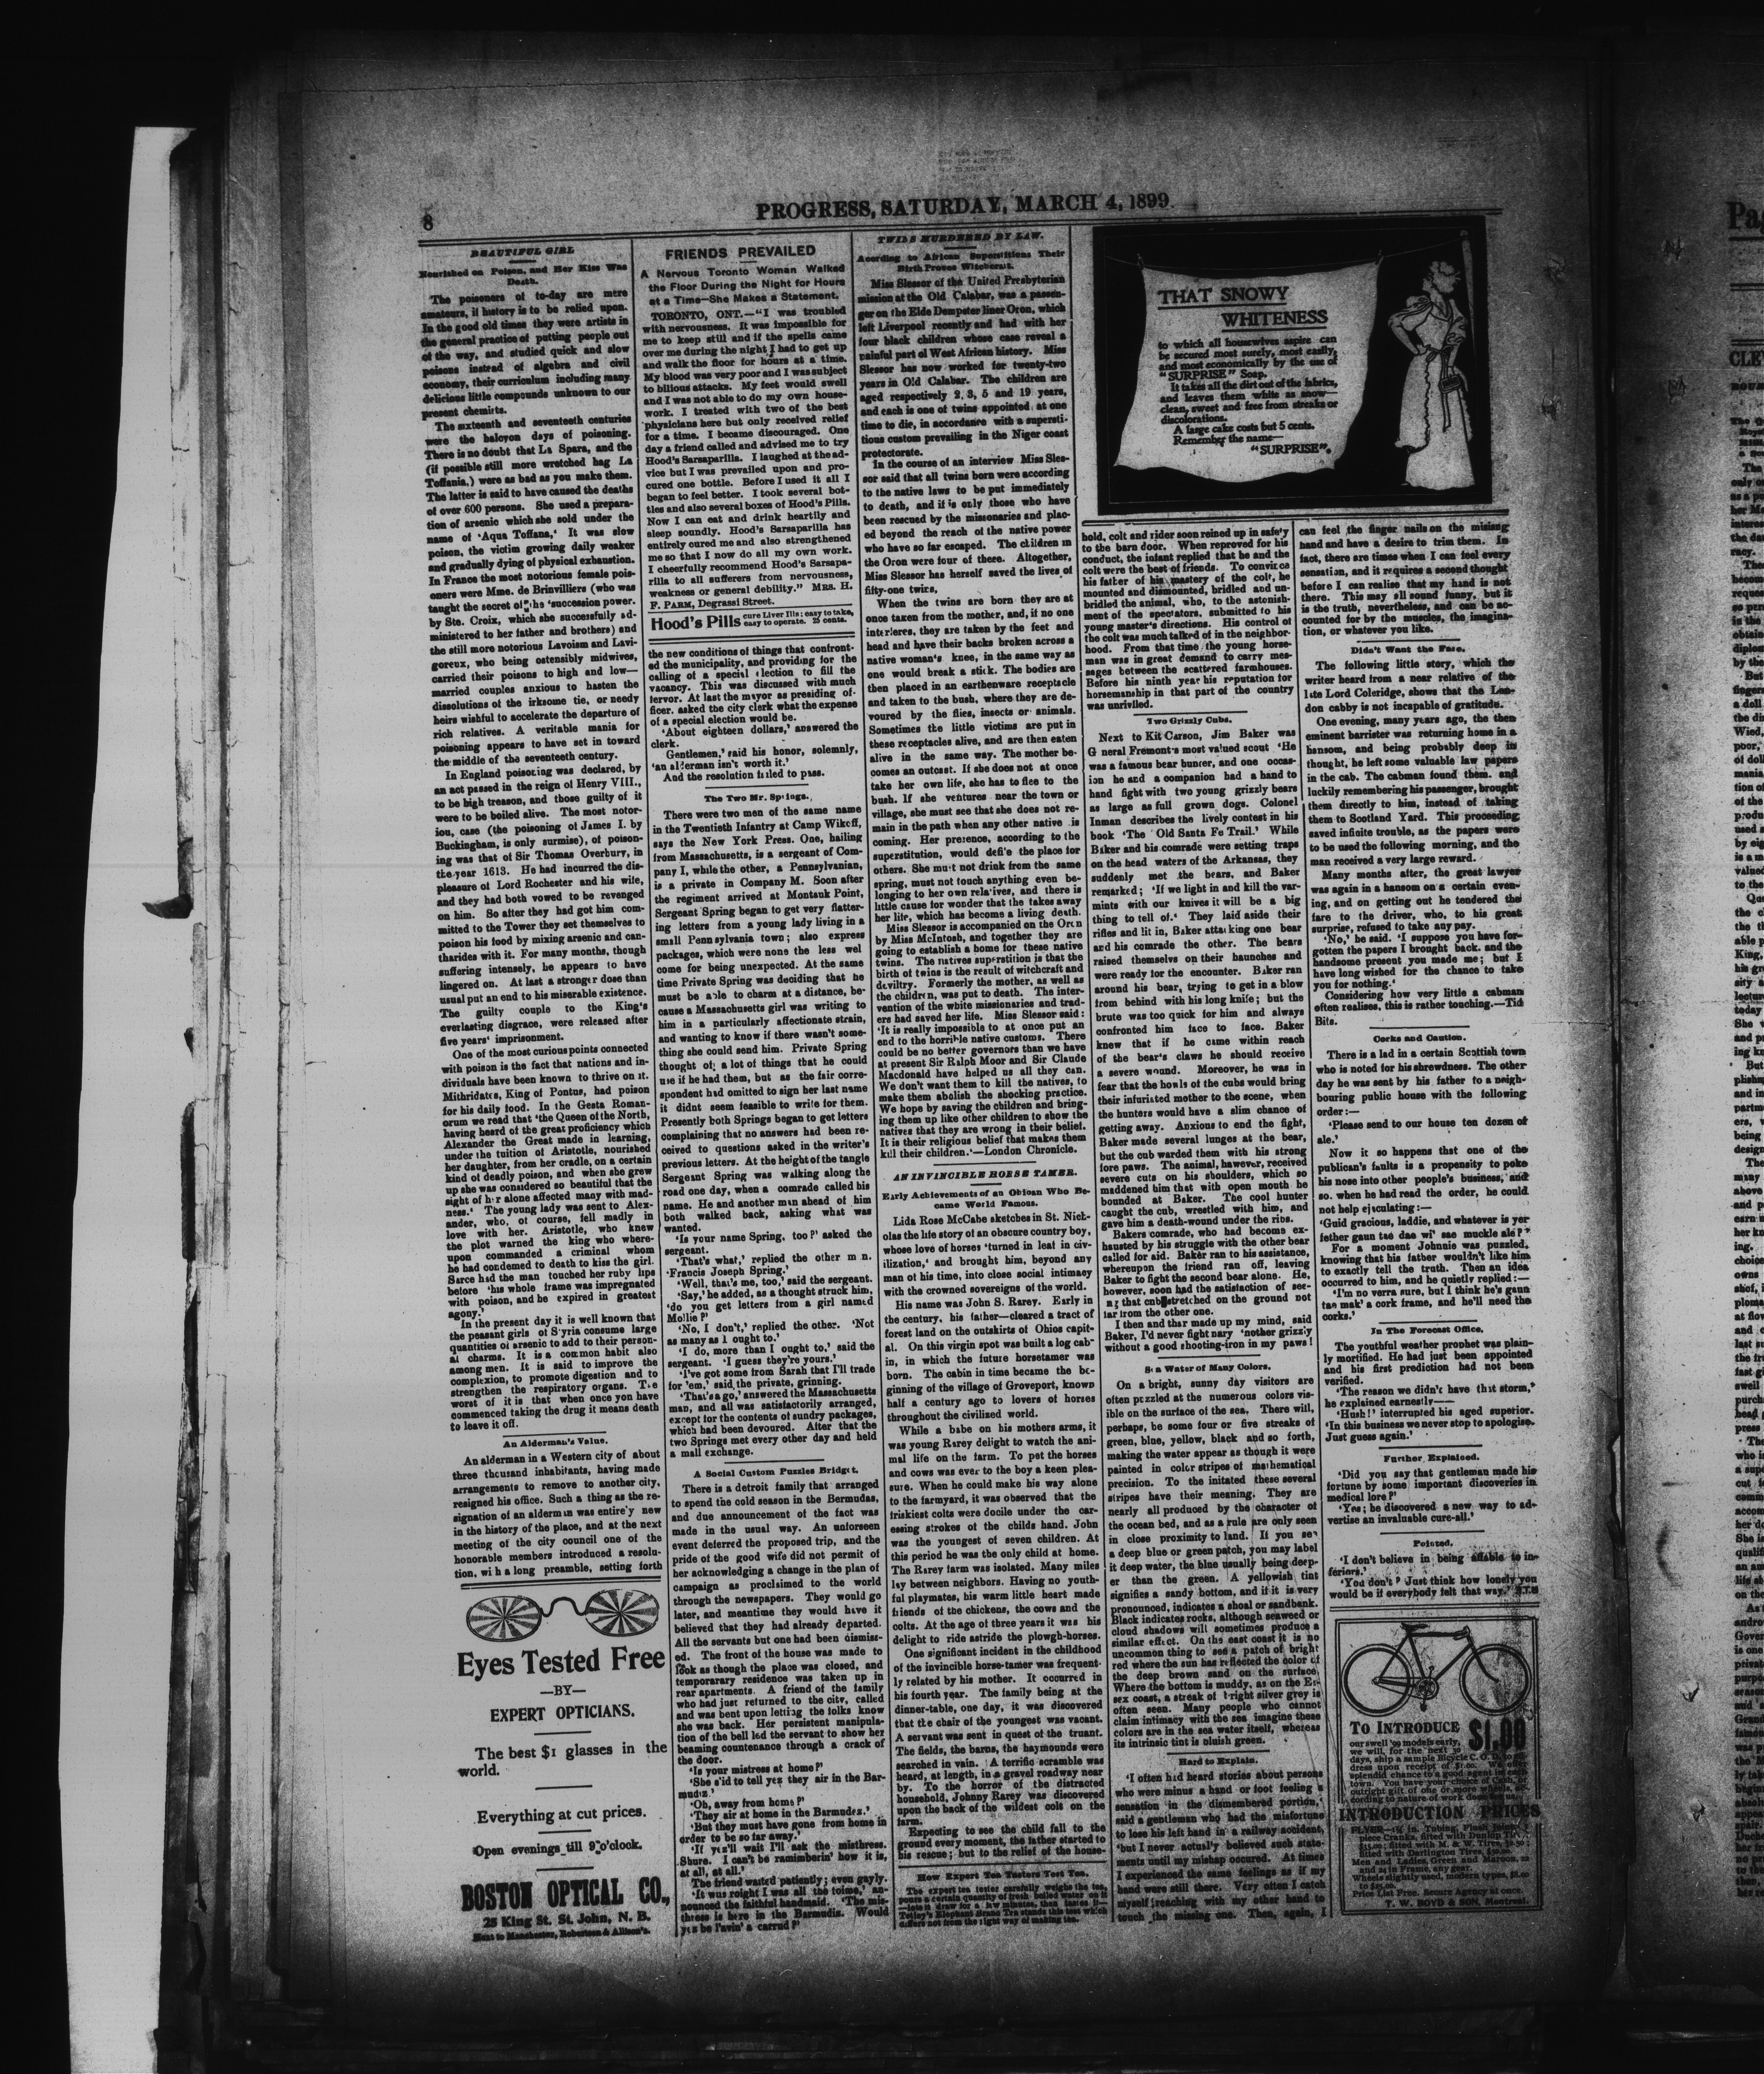 8
PROGRESS, SATURDAY, MARCH 4, 1899.
BEAUTIFUL GIRL
Nourished on Poison, and Her Kiss Was
Death.
The poisoners of to-day are mere
amateurs, if history is to be relied upon.
In the good old times they were artists in
the general practice of putting people out
of the way, and studied quick and slow
poisons instead of algebra and civil
economy, their curriculum including many
delicious little compounds unknown to our
present chemists.
The sixteenth and seventeeth centuries
were the halcyon days of poisoning.
There is no doubt that La Spara, and the
(if possible still more wretched hag La
Toffania,) were as bad as you make them.
The latter is said to have caused the deaths
of over 600 persons. She used a prepara-
tion of arsenic which she sold under the
name of 'Aqua Toffana,' It was slow
poison, the victim growing daily weaker
and gradually dying of physical exhaustion.
In France the most notorious female pois-
oners were Mme. de Brinvilliers (who was
taught the secret of the 'succession power.
by Ste. Croix, which she successfully ad-
ministered to her father and brothers) and
the still more notorious Lavoism and Lavi-
goreux, who being ostensibly midwives,
carried their poisons to high and low—
married couples anxious to hasten the
dissolutions of the irksome tie, or needy
heirs wishful to accelerate the departure of
rich relatives. A veritable mania for
poisoning appears to have set in toward
the middle of the seventeeth century.
In England poisoning was declared, by
an act passed in the reign of Henry VIII.,
to be high treason, and those guilty of it
were to be boiled alive. The most notor-
iou, case (the poisoning of James I. by
Buckingham, is only surmise), of poison-
ing was that of Sir Thomas Overbury, in
the year 1613. He had incurred the dis-
pleasure of Lord Rochester and his wife,
and they had both vowed to be revenged
on him. So after they had got him com-
mitted to the Tower they set themselves to
poison his food by mixing arsenic and can-
tharides with it. For many months, though
suffering intensely, he appears to have
lingered on. At last a stronger dose than
usual put an end to his miserable existence.
The guilty couple to the King's
everlasting disgrace, were released after
five years' imprisonment.
One of the most curious points connected
with poison is the fact that nations and in-
dividuals have been known to thrive on it.
Mithridates, King of Pontus, had poison
for his daily food. In the Gesta Roman-
orum we read that 'the Queen of the North,
having heard of the great proficiency which
Alexander the Great made in learning,
under the tuition of Aristotle, nourished
her daughter, from her cradle, on a certain
kind of deadly poison, and when she grew
up she was considered so beautiful that the
sight of her alone affected many with mad-
ness.' The young lady was sent to Alex-
ander, who, of course, fell madly in
love with her. Aristotle, who knew
the plot warned the king who where-
upon commanded a criminal whom
he had condemed to death to kiss the girl.
Sarce had the man touched her ruby lips
before 'his whole frame was impregnated
with poison, and he expired in greatest
agony.'
In the present day it is well known that
the peasant girls of Syria consume large
quantities of arsenic to add to their person-
al charms. It is a common habit also
among men. It is said to improve the
complexion, to promote digestion and to
strengthen the respiratory organs. The
worst of it is that when once you have
commenced taking the drug it means death
to leave it off.
An Alderman's Value.
An alderman in a Western city of about
three thousand inhabitants, having made
arrangements to remove to another city,
resigned his office. Such a thing as the re-
signation of an alderman was entire'y new
in the history of the place, and at the next
meeting of the city council one of the
honorable members introduced a resolu-
tion, wi h a long preamble, setting forth
Eyes Tested Free
—BY—
EXPERT OPTICIANS.
The best $1 glasses in the
world.
Everything at cut prices.
Open evenings till 9 o'clock.
BOSTON OPTICAL CO.,
25 King St. St. John, N. B.
Next to Manchester, Robertson & Allison's.
FRIENDS PREVAILED
A Nervous Toronto Woman Walked
the Floor During the Night for Hours
at a Time—She Makes a Statement.
TORONTO, ONT.—"I was troubled
with nervousness. It was impossible for
me to keep still and if the spells came
over me during the night I had to get up
and walk the floor for hours at a time.
My blood was very poor and I was subject
to bilious attacks. My feet would swell
and I was not able to do my own house-
work. I treated with two of the best
physicians here but only received relief
for a time. I became discouraged. One
day a friend called and advised me to try
Hood's Sarsaparilla. I laughed at the ad-
vice but I was prevailed upon and pro-
cured one bottle. Before I used it all I
began to feel better. I took several bot-
tles and also several boxes of Hood's Pills.
Now I can eat and drink heartily and
sleep soundly. Hood's Sarsaparilla has
entirely cured me and also strengthened
me so that I now do all my own work.
I cheerfully recommend Hood's Sarsapa-
rilla to all sufferers from nervousness,
weakness or general debility." MRS. H.
F. PARM, Degrassi Street.
Hood's Pills cure Liver Ills; easy to take,
easy to operate. 25 cents.
the new conditions of things that confront-
ed the municipality, and providing for the
calling of a special election to fill the
vacancy. This was discussed with much
fervor. At last the mayor as presiding of-
ficer, asked the city clerk what the expense
of a special election would be.
'About eighteen dollars,' answered the
clerk.
Gentlemen,' said his honor, solemnly,
'an alderman isn't worth it.'
And the resolution failed to pass.
The Two Mr. Springs.
There were two men of the same name
in the Twentieth Infantry at Camp Wikoff,
says the New York Press. One, hailing
from Massachusetts, is a sergeant of Com-
pany I, while the other, a Pennsylvanian,
is a private in Company M. Soon after
the regiment arrived at Montauk Point,
Sergeant Spring began to get very flatter-
ing letters from a young lady living in a
small Pennsylvania town; also express
packages, which were none the less wel
come for being unexpected. At the same
time Private Spring was deciding that he
must be able to charm at a distance, be-
cause a Massachusetts girl was writing to
him in a particularly affectionate strain,
and wanting to know if there wasn't some-
thing she could send him. Private Spring
thought of; a lot of things that he could
use if he had them, but as the fair corre-
spondent had omitted to sign her last name
it didnt seem feasible to write for them.
Presently both Springs began to get letters
complaining that no answers had been re-
ceived to questions asked in the writer's
previous letters. At the height of the tangle
Sergeant Spring was walking along the
road one day, when a comrade called his
name. He and another man ahead of him
both walked back, asking what was
wanted.
'Is your name Spring, too?' asked the
sergeant.
'That's what,' replied the other m n.
'Francis Joseph Spring.'
'Well, that's me, too,' said the sergeant.
'Say,' he added, as a thought struck him,
'do you get letters from a girl named
Mollie?'
'No, I don't,' replied the other. 'Not
as many as I ought to.'
'I do, more than I ought to,' said the
sergeant. 'I guess they're yours.'
'I've got some from Sarah that I'll trade
for 'em,' said the private, grinning.
'That's a go,' answered the Massachusetts
man, and all was satisfactorily arranged,
except for the contents of sundry packages,
which had been devoured. After that the
two Springs met every other day and held
a mail exchange.
A Social Custom Puzzles Bridget.
There is a detroit family that arranged
to spend the cold season in the Bermudas,
and due announcement of the fact was
made in the usual way. An unforseen
event deferred the proposed trip, and the
pride of the good wife did not permit of
her acknowledging a change in the plan of
campaign as proclaimed to the world
through the newspapers. They would go
later, and meantime they would have it
believed that they had already departed.
All the servants but one had been dismiss-
ed. The front of the house was made to
look as though the place was closed, and
temporarary residence was taken up in
rear apartments. A friend of the family
who had just returned to the city, called
and was bent upon letting the folks know
she was back. Her persistent manipula-
tion of the bell led the servant to show her
beaming countenance through a crack of
the door.
'Is your mistress at home?'
'She s'id to tell yez they air in the Bar-
mudiz.'
'Oh, away from home?'
'They air at home in the Barmudez.'
'But they must have gone from home in
order to be so far away.'
'If yez'll wait I'll ask the misthress.
Shure. I can't be ramimberin' how it is,
at all, at all.'
The friend waited patiently; even gayly.
'It was roight I was all the toime,' an-
nounced the faithful handmaid. 'The mis-
thress is here in the Barmudiz. Would
yez be l'avin' a carrud?'
TWINS MURDERED BY LAW.
Acording to African Superstitions Their
Birth Proves Witchcraft.
Miss Slessor of the United Presbyterian
mission at the Old Calabar, was a passen-
ger on the Elde Dempster liner Oron, which
left Liverpool recently and had with her
four black children whose case reveal a
painful part of West African history. Miss
Slessor has now worked for twenty-two
years in Old Calabar. The children are
aged respectively 2, 3, 5 and 19 years,
and each is one of twins appointed, at one
time to die, in accordance with a supersti-
tious custom prevailing in the Niger coast
protectorate.
In the course of an interview Miss Sles-
sor said that all twins born were according
to the native laws to be put immediately
to death, and it is only those who have
been rescued by the missionaries and plac-
ed beyond the reach of the native power
who have so far escaped. The children in
the Oron were four of these. Altogether,
Miss Slessor has herself saved the lives of
fifty-one twirs,
When the twins are born they are at
once taken from the mother, and, if no one
interferes, they are taken by the feet and
head and have their backs broken across a
native woman's knee, in the same way as
one would break a stick. The bodies are
then placed in an earthenware receptacle
and taken to the bush, where they are de-
voured by the flies, insects or animals.
Sometimes the little victims are put in
these receptacles alive, and are then eaten
alive in the same way. The mother be-
comes an outcast. If she does not at once
take her own life, she has to flee to the
bush. If she ventures near the town or
village, she must see that she does not re-
main in the path when any other native is
coming. Her presence, according to the
superstition, would defi'e the place for
others. She must not drink from the same
spring, must not touch anything even be-
longing to her own rela'ives, and there is
little cause for wonder that the takes away
her life, which has become a living death.
Miss Slessor is accompanied on the Oron
by Miss McIntosh, and together they are
going to establish a home for these native
twins. The natives superstition is that the
birth of twins is the result of witchcraft and
deviltry. Formerly the mother, as well as
the children, was put to death. The inter-
vention of the white missionaries and trad-
ers had saved her life. Miss Slessor said:
'It is really impossible to at once put an
end to the horrible native customs. There
could be no better governors than we have
at present Sir Ralph Moor and Sir Claude
Macdonald have helped us all they can.
We don't want them to kill the natives, to
make them abolish the shocking practice.
We hope by saving the children and bring-
ing them up like other children to show the
natives that they are wrong in their belief.
It is their religious belief that makes them
kill their children.'—London Chronicle.
AN INVINCIBLE HORSE TAMER.
Early Achievements of an Ohioan Who Be-
came World Famous.
Lida Rose McCabe sketches in St. Nich-
olas the life story of an obscure country boy,
whose love of horses 'turned in leaf in civ-
ilization,' and brought him, beyond any
man of his time, into close social intimacy
with the crowned sovereigns of the world.
His name was John S. Rarey. Early in
the century, his father—cleared a tract of
forest land on the outskirts of Ohios capit-
al. On this virgin spot was built a log cab-
in, in which the future horsetamer was
born. The cabin in time became the be-
ginning of the village of Groveport, known
half a century ago to lovers of horses
throughout the civilized world.
While a babe on his mothers arms, it
was young Rarey delight to watch the ani-
mal life on the farm. To pet the horses
and cows was ever to the boy a keen plea-
sure. When he could make his way alone
to the farmyard, it was observed that the
friskiest colts were docile under the car-
essing strokes of the childs hand. John
was the youngest of seven children. At
this period he was the only child at home.
The Rarey farm was isolated. Many miles
lay between neighbors. Having no youth-
ful playmates, his warm little heart made
friends of the chickens, the cows and the
colts. At the age of three years it was his
delight to ride astride the plowgh-horses.
One significant incident in the childhood
of the invincible horse-tamer was frequent-
ly related by his mother. It occurred in
his fourth year. The family being at the
dinner-table, one day, it was discovered
that the chair of the youngest was vacant.
A servant was sent in quest of the truant.
The fields, the barns, the haymounds were
searched in vain. A terrific scramble was
heard, at length, in a gravel roadway near
by. To the horror of the distracted
household, Johnny Rarey was discovered
upon the back of the wildest colt on the
farm.
Expecting to see the child fall to the
ground every moment, the father started to
his rescue; but to the relief of the house-
How Expert Tea Tasters Test Tea.
The expert tea tester carefully weighs the tea,
pours a certain quantity of fresh boiled water on it
—lets it draw for a few minutes, then tastes it—
Tetley's Elephant Brand Tea stands this test which
differs not from the right way of making tea.
THAT SNOWY
WHITENESS
to which all housewives aspire can
be secured most surely, most easily,
and most economically by the use of
"SURPRISE" Soap.
It takes all the dirt out of the fabrics,
and leaves them white as snow—
clean, sweet and free from streaks or
discolorations.
A large cake costs but 5 cents.
Remember the name—
"SURPRISE".
hold, colt and rider soon reined up in safety
to the barn door. When reproved for his
conduct, the infant replied that he and the
colt were the best of friends. To convince
his father of his mastery of the colt, he
mounted and dismounted, bridled and un-
bridled the animal, who, to the astonish-
ment of the spectators, submitted to his
young master's directions. His control of
the colt was much talked of in the neighbor-
hood. From that time the young horse-
man was in great demand to carry mes-
sages between the scattered farmhouses.
Before his ninth year his reputation for
horsemanship in that part of the country
was unrivlled.
Two Grizzly Cubs.
Next to Kit Carson, Jim Baker was
G neral Fremont's most valued scout 'He
was a famous bear hunter, and one occas-
ion he and a companion had a hand to
hand fight with two young grizzly bears
as large as full grown dogs. Colonel
Inman describes the lively contest in his
book 'The Old Santa Fe Trail.' While
Baker and his comrade were setting traps
on the head waters of the Arkansas, they
suddenly met the bears, and Baker
remarked; 'If we light in and kill the var-
mints with our knives it will be a big
thing to tell of.' They laid aside their
rifles and lit in, Baker attacking one bear
and his comrade the other. The bears
raised themselves on their haunches and
were ready for the encounter. Baker ran
around his bear, trying to get in a blow
from behind with his long knife; but the
brute was too quick for him and always
confronted him face to face. Baker
knew that if he came within reach
of the bear's claws he should receive
a severe wound. Moreover, he was in
fear that the howls of the cubs would bring
their infuriated mother to the scene, when
the hunters would have a slim chance of
getting away. Anxious to end the fight,
Baker made several lunges at the bear,
but the cub warded them with his strong
fore paws. The animal, however, received
severe cuts on his shoulders, which so
maddened him that with open mouth he
bounded at Baker. The cool hunter
caught the cub, wrestled with him, and
gave him a death-wound under the ribs.
Bakers comrade, who had become ex-
hausted by his struggle with the other bear
called for aid. Baker ran to his assistance,
whereupon the friend ran off, leaving
Baker to fight the second bear alone. He,
however, soon had the satisfaction of see-
ng that cub stretched on the ground not
far from the other one.
I then and thar made up my mind, said
Baker, I'd never fight nary 'nother grizzly
without a good shooting-iron in my paws!
Sea Water of Many Colors.
On a bright, sunny day visitors are
often puzzled at the numerous colors vis-
ible on the surface of the sea. There will,
perhaps, be some four or five streaks of
green, blue, yellow, black and so forth,
making the water appear as though it were
painted in color stripes of mathematical
precision. To the initated these several
stripes have their meaning. They are
nearly all produced by the character of
the ocean bed, and as a rule are only seen
in close proximity to land. If you see
a deep blue or green patch, you may label
it deep water, the blue usually being deep-
er than the green. A yellowish tint
signifies a sandy bottom, and if it is very
pronounced, indicates a shoal or sandbank.
Black indicates rocks, although seaweed or
cloud shadows will sometimes produce a
similar effect. On the east coast it is no
uncommon thing to see a patch of bright
red where the sun has reflected the color of
the deep brown sand on the surface.
Where the bottom is muddy, as on the Es-
sex coast, a streak of bright silver grey is
often seen. Many people who cannot
claim intimacy with the sea imagine these
colors are in the sea water itself, whereas
its intrinsic tint is bluish green.
Hard to Explain.
'I often had heard stories about persons
who were minus a hand or foot feeling a
sensation in the dismembered portion,'
said a gentleman who had the misfortune
to lose his left hand in a railway accident,
'but I never actually believed such state-
ments until my mishap occured. At times
I experienced the same feelings as if my
hand were still there. Very often I catch
myself reaching with my other hand to
touch the missing one. Then, again, I
can feel the finger nails on the missing
hand and have a desire to trim them. In
fact, there are times when I can feel every
sensation, and it requires a second thought
before I can realise that my hand is not
there. This may all sound funny, but it
is the truth, nevertheless, and can be ac-
counted for by the muscles, the imagina-
tion, or whatever you like.
Didn't Want the Fare.
The following little story, which the
writer heard from a near relative of the
late Lord Coleridge, shows that the Lon-
don cabby is not incapable of gratitude.
One evening, many years ago, the then
eminent barrister was returning home in a
hansom, and being probably deep in
thought, he left some valuable law papers
in the cab. The cabman found them. and
luckily remembering his passenger, brought
them directly to him, instead of taking
them to Scotland Yard. This proceeding
saved infinite trouble, as the papers were
to be used the following morning, and the
man received a very large reward.
Many months after, the great lawyer
was again in a hansom on a certain even-
ing, and on getting out he tendered the
fare to the driver, who, to his great
surprise, refused to take any pay.
'No,' he said. 'I suppose you have for-
gotten the papers I brought back. and the
handsome present you made me; but I
have long wished for the chance to take
you for nothing.'
Considering how very little a cabman
often realises, this is rather touching.—Tid
Bits.
Corks and Caution.
There is a lad in a certain Scottish town
who is noted for his shrewdness. The other
day he was sent by his father to a neigh-
bouring public house with the following
order:—
'Please send to our house ten dozen of
ale.'
Now it so happens that one of the
publican's faults is a propensity to poke
his nose into other people's business, and
so. when he had read the order, he could
not help ejaculating:—
'Guid gracious, laddie, and whatever is yer
father gaun tae dae wi' sae muckle ale?'
For a moment Johnnie was puzzled,
knowing that his father wouldn't like him
to exactly tell the truth. Then an idea
occurred to him, and he quietly replied:—
'I'm no verra sure, but I think he's gaun
tae mak' a cork frame, and he'll need the
corks.'
In The Forecast Office.
The youthful weather prophet was plain-
ly mortified. He had just been appointed
and his first prediction had not been
verified.
'The reason we didn't have that storm,'
he explained earnestly——
'Hush!' interrupted his aged superior.
'In this business we never stop to apologise.
Just guess again.'
Further Explained.
'Did you say that gentleman made his
fortune by some important discoveries in
medical lore?'
'Yes; he discovered a new way to ad-
vertise an invaluable cure-all.'
Pointed.
'I don't believe in being affable to in-
feriors.'
'You don't? Just think how lonely you
would be if everybody felt that way.'
TO INTRODUCE $1.00
our swell '99 models early,
we will, for the next 30
days, ship a sample Bicycle C. O. D. to ad-
dress upon receipt of $1.00. We offer
splendid chance to a good agent in each
town. You have your choice of Cash, or
outright gift of one or more wheels, ac-
cording to nature of work done for us.
INTRODUCTION PRICES
piece Cranks, fitted with Dunlop
fitted with M. & W. Tires,
fitted with Darlington Tires, $30.00.
Men and Ladies, Green and Maroon, 22
and 24 in Frame, any gear.
Wheels slightly used, modern types, $8.00
to $25.00.
Price List Free. Secure Agency at once.
T. W. BOYD & SON, Montreal.